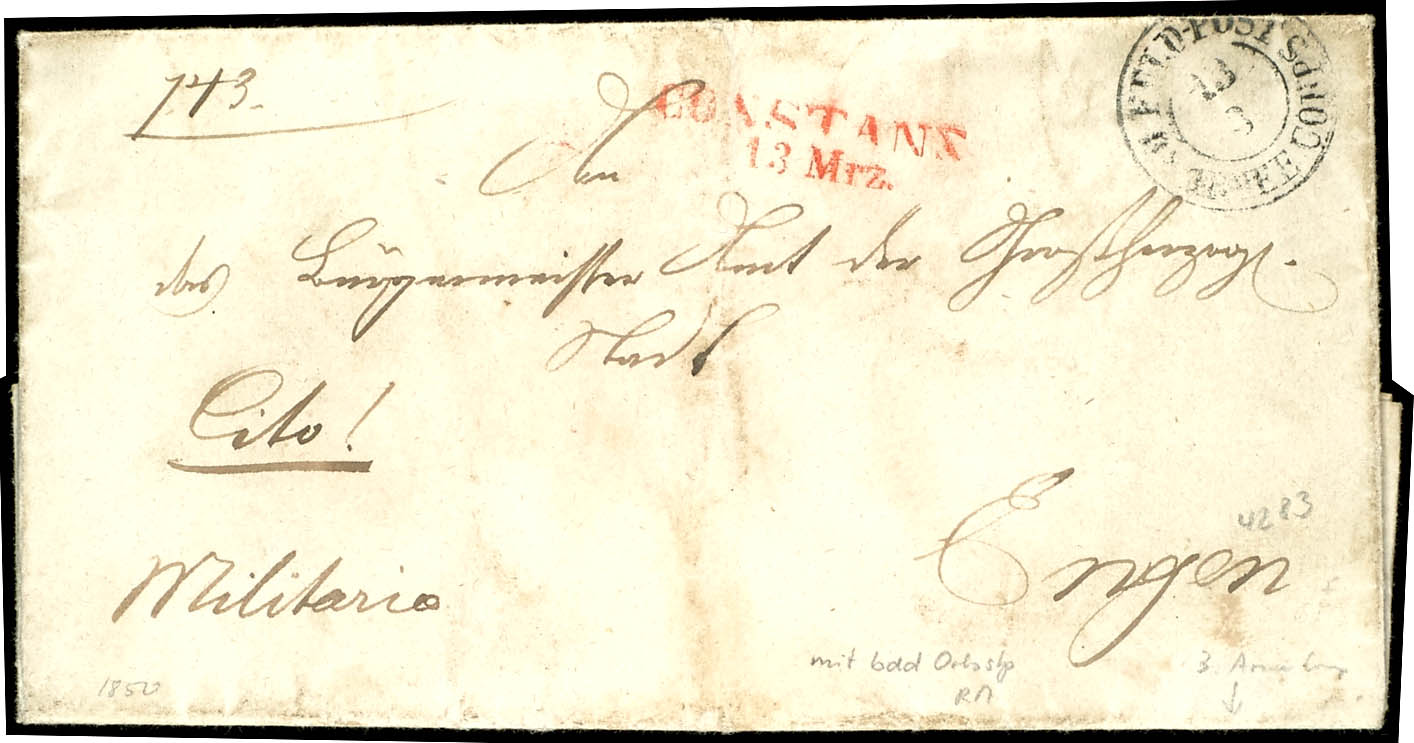 743.
CONSTANZ
13 Mrz.
FELD-POST
13
3
ARMEE CORPS
An
das Bürgermeister Amt der Großherzogl.
Stadt
Cito!
Engen
4283
Militaria
mit bdd
3.
1850